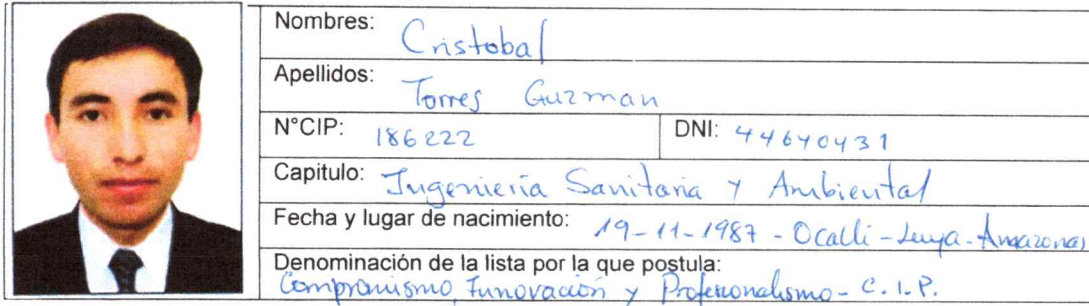 Nombres: Cristobal
Apellidos: Torres Guzman
N°CIP: 186222 DNI: 44640431
Capitulo: Ingenieria Sanitaria y Ambiental
Fecha y lugar de nacimiento: 19-11-1987 - Ocalli - Luya - Amazonas
Denominación de la lista por la que postula:
Compromismo, Innovación y Profesionalismo - C.I.P.